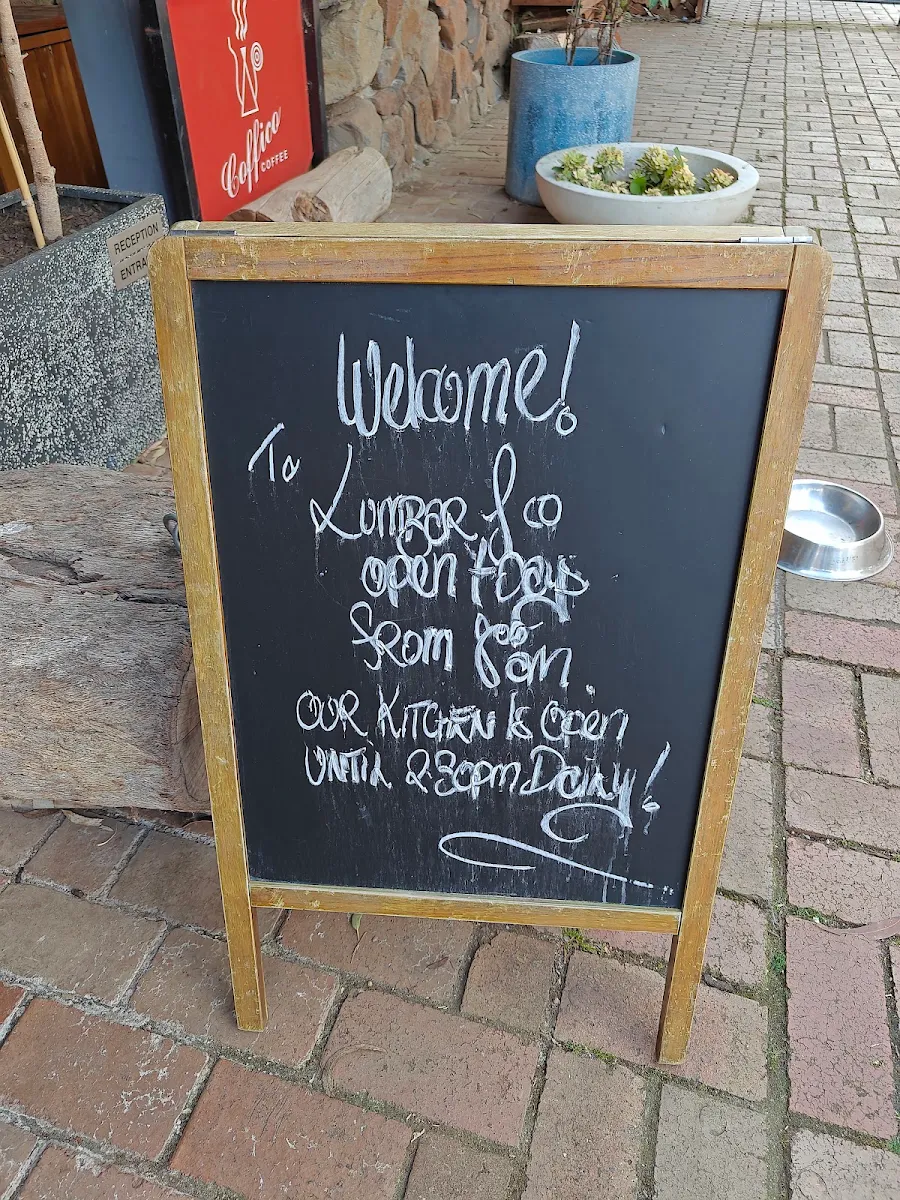 Coffico
COFFEE
RECEPTION
Welcome!
To
LUMBAR & CO
OPEN 7 Days
FROM 800am
OUR KITCHEN IS OPEN
UNTIL 2.30pm DAILY!